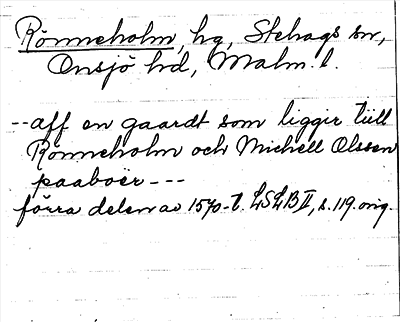 Rönneholm, hg, Stehags sn,
Onsjö hd, Malm. l.
--aff en gaardt som liggir tiill
Rönneholm och Michell Olssen
paaboër ---
förra delen av 1570-t. LSLB II, s. 119. orig.